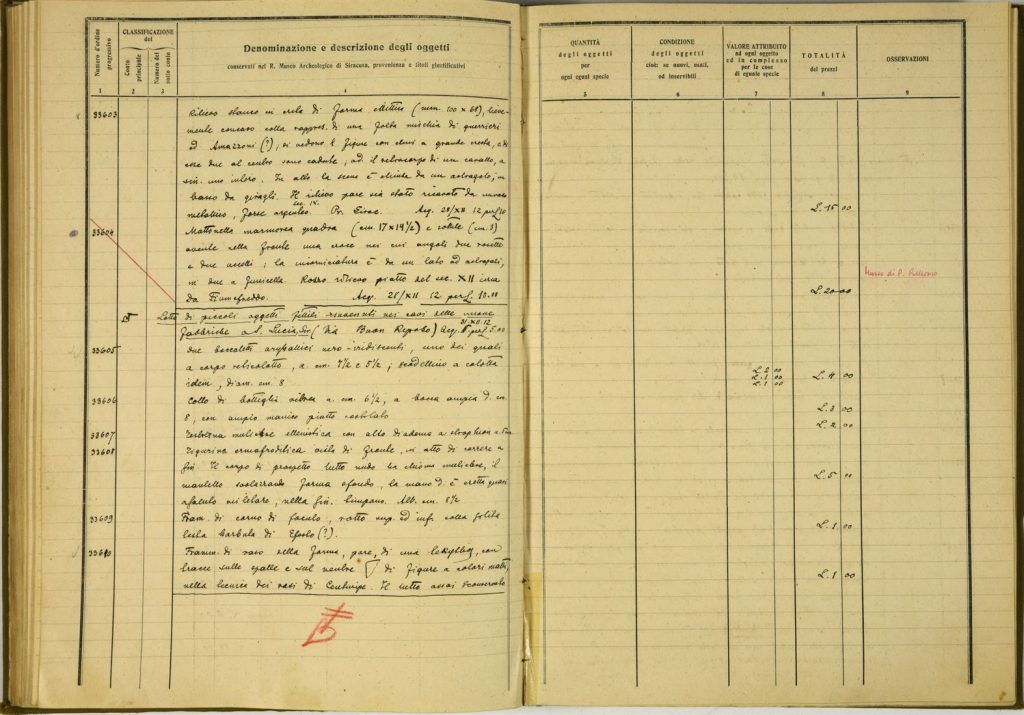 Numero d'ordine progressivo
CLASSIFICAZIONE del
Conto principale
Numero del sotto conto
Denominazione e descrizione degli oggetti
conservati nel R. Museo Archeologico di Siracusa, provenienza e titoli giustificativi
1 2 3 4
33603 Rilievo stanco in creta di forma ellittica (mm. 100 x 68), lieve-
mente concavo colla rappres. di una folta mischia di guerrieri
ad Amazzoni (?), si vedono figure con elmi a grande cresta, e di
esse due al centro sono cadute; ad. il retrocorpo di un cavallo, a
sin. uno intero. In alto la scena è chiusa da un astragalo, in
basso da giragli. Il rilievo pare sia stato ricavato da
metallico, forse argenteo. Pr. Sirac. Acq. 28/XII 12 per L.
sec. IV.
33604 Mattonella marmorea quadra (cm. 17 x 14 1/2) e sottile (cm. 3)
avente nella fronte una croce nei cui angoli due rosette
e due uccelli; la incorniciatura è da un lato ad astragali,
in due a funicella. Rozzo rilievo piatto del sec. XII circa
Da Fiumefreddo. Acq. 28/XII 12 per L. 20.00
Lotto di piccoli oggetti fittili rinvenuti nei cavi delle nuove
31-XII-12
fabbriche a S. Lucia, Sir. (Via Buon Riposo) Acq. per L. 5.00
33605 due boccaletti aryballici nero-iridiscenti, uno dei quali
a corpo reticolato, a. cm. 7 1/2 e 5 1/2; scodellino a calotta
idem, diam. cm. 8
33606 Collo di bottiglia vitrea a. cm. 6 1/2, a bocca ampia d. cm.
8, con ampio manico piatto costolato
33607 Testolina muliebre ellenistica con alto diadema a
33608 Figurina ermafroditica acefala di fronte, in atto di correre a
sin. Il corpo di prospetto tutto nudo ha muliebre, il
mantello svolazzando forma sfondo, la mano d. è eretta quasi
nella sin. timpano. Alt. cm. 8 1/2
33609 Fram. di corno di fuoco, rotto sup. ed inf. colla solita
testa barbata di Efesto (?).
33610 Framm. di vaso della forma, pare, di una lekythos, con
tracce sulle spalle e sul ventre di figure a colori
nella tecnica dei vasi di Centuripe. Il tutto assai sconservato
QUANTITÀ
degli oggetti
per
ogni eguai specie
CONDIZIONE
degli oggetti
cioè: se nuovi, usati,
od inservibili
VALORE ATTRIBUITO
ad ogni oggetto
ed in complesso
per le cose
di eguale specie
TOTALITÀ
dei prezzi
OSSERVAZIONI
5 6 7 8 9
L. 15 00
Museo di P. Bellomo
L. 20 00
L. 2 00
L. 1 00
L. 1 00
L. 4 00
L. 3 00
L. 2 00
L. 5 "
L. 1 00
L. 1 00